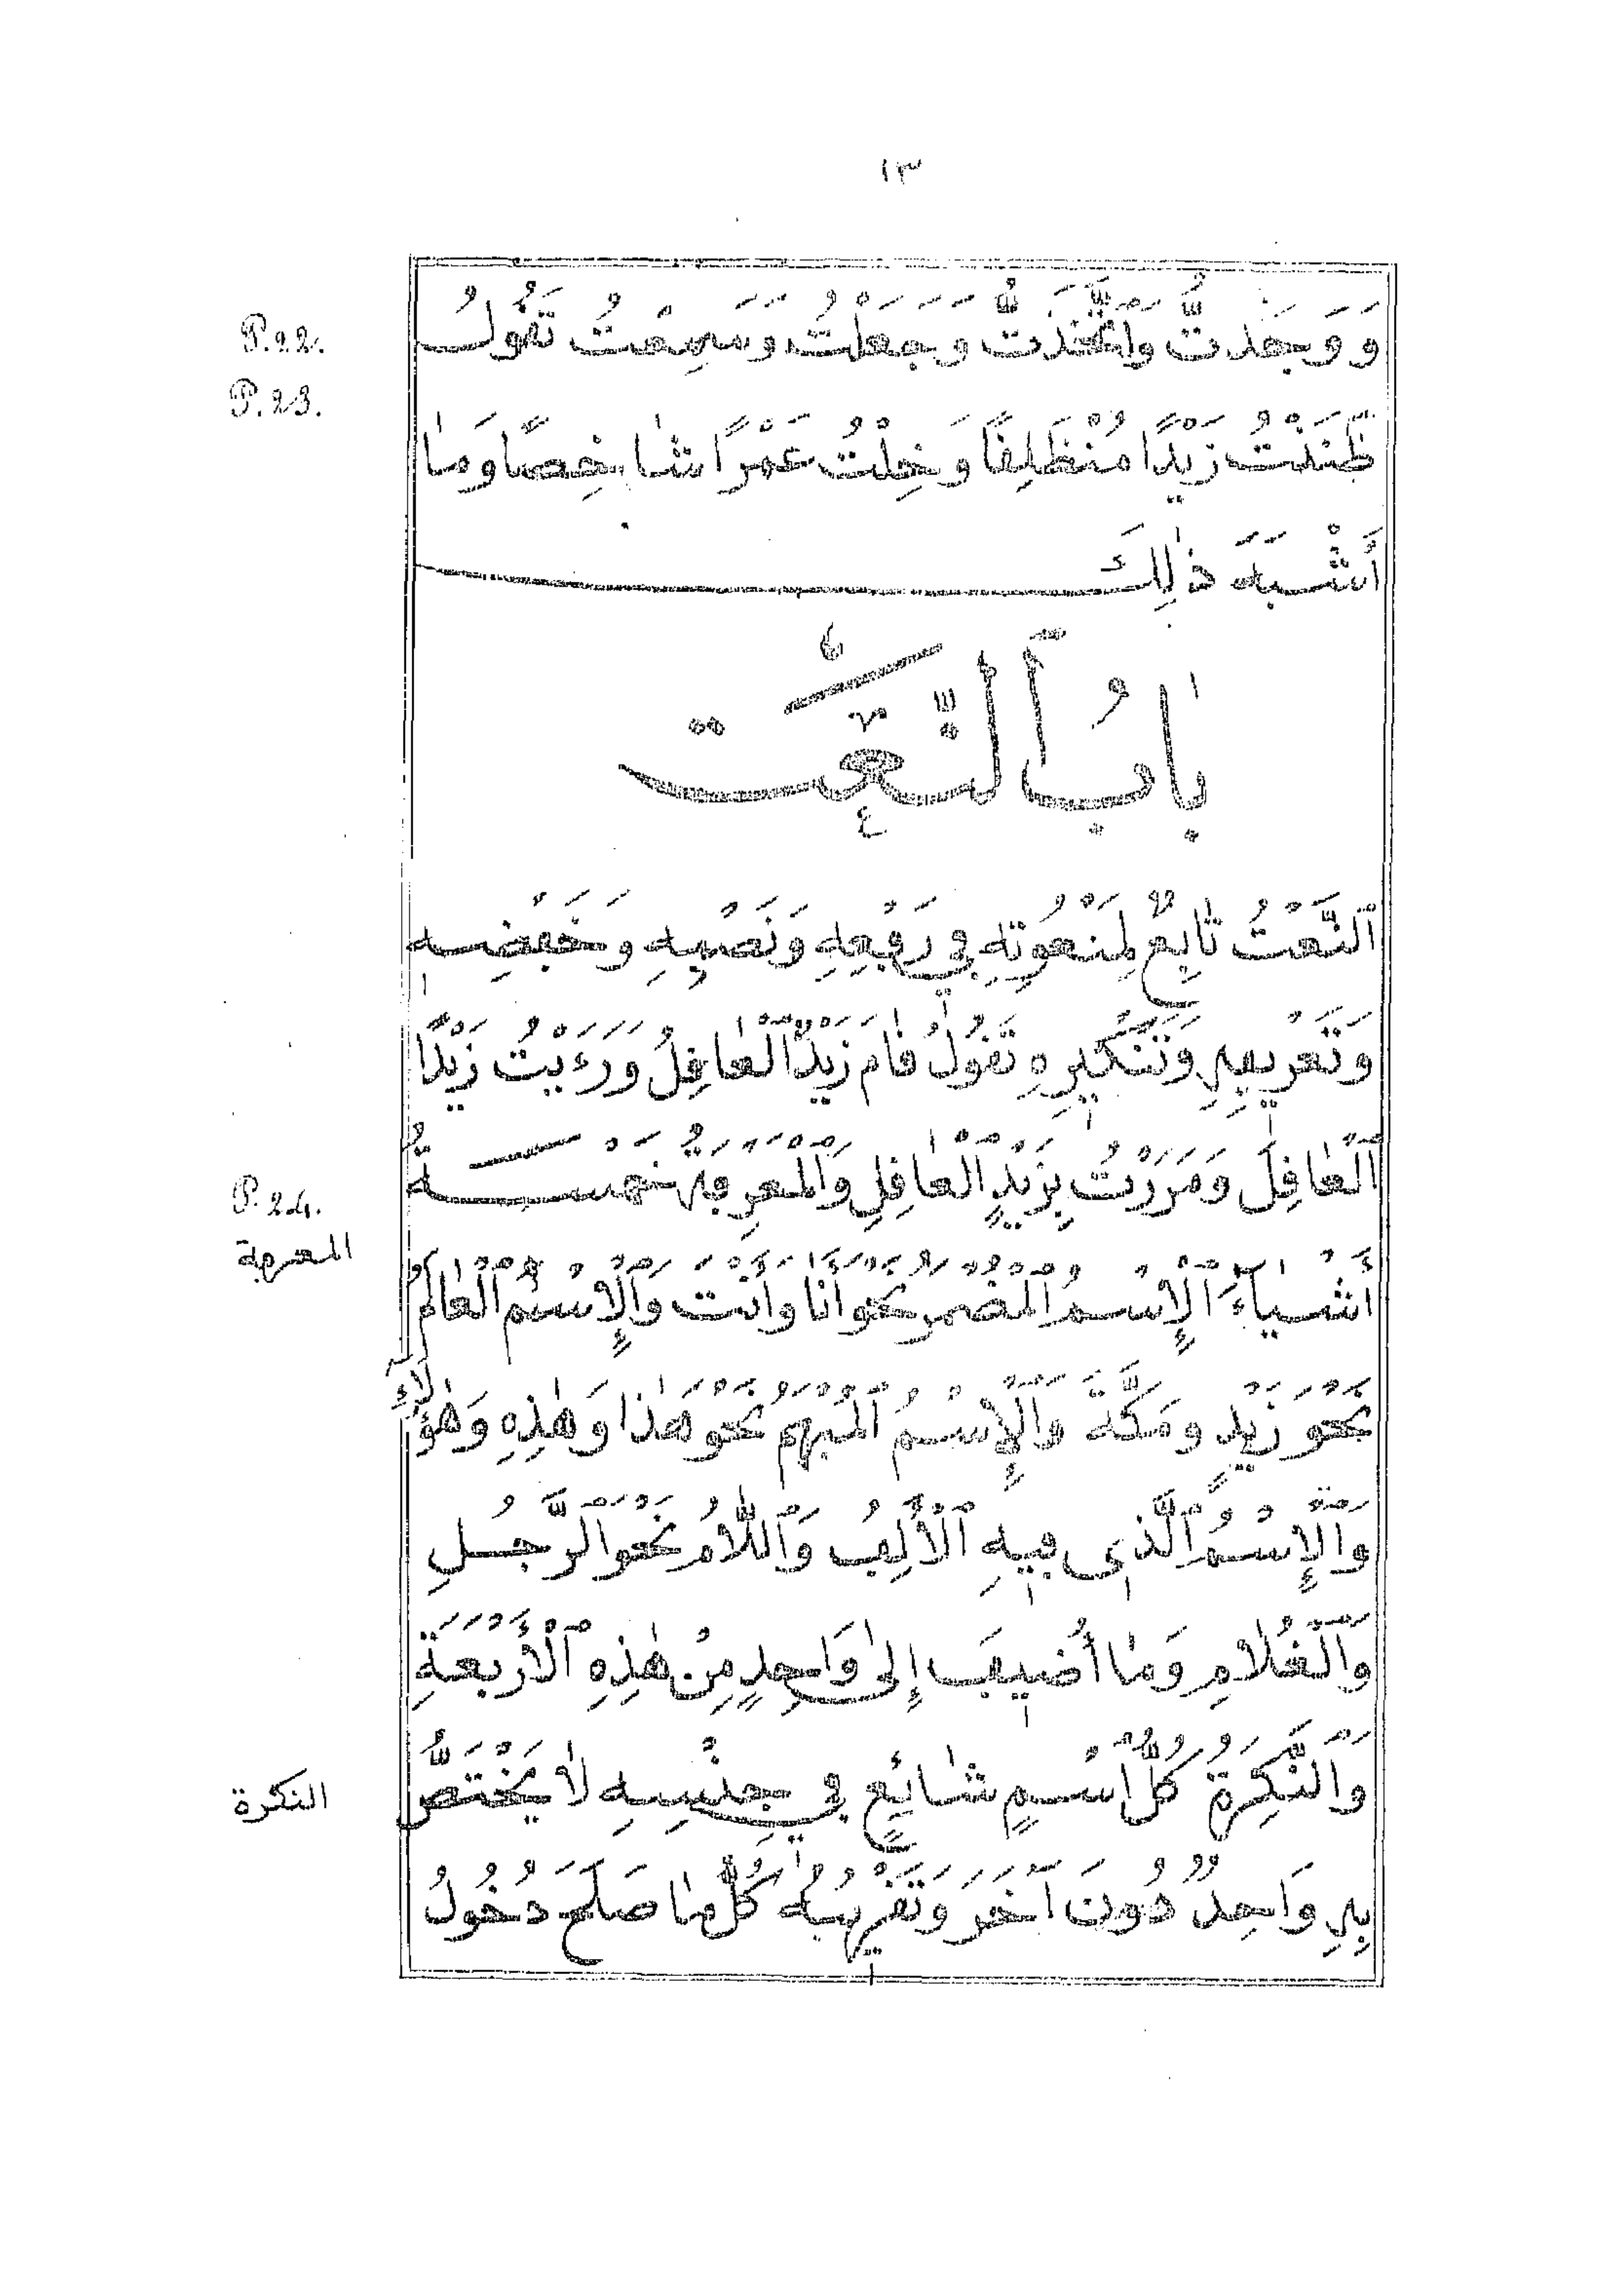 ١٣
P. 22.
وَوَجَدتُّ وَاتَّخَذتُّ وَجَعَلْتُ وَسَمِعْتُ تَقُولُ
P. 23.
ظَنَنْتُ زَيْدًا مُنْطَلِقًا وَخِلْتُ عَمْرًا شَاخِصًا وَمَا
أَشْبَهَ ذٰلِكَ
بَابُ ٱلنَّعْتِ
ٱلنَّعْتُ تَابِعٌ لِمَنْعُوتِهِ فِي رَفْعِهِ وَنَصْبِهِ وَخَفْضِهِ
وَتَعْرِيفِهِ وَتَنْكِيرِهِ تَقُولُ قَامَ زَيْدٌ ٱلْعَاقِلُ وَرَءَيْتُ زَيْدًا
ٱلْعَاقِلَ وَمَرَرْتُ بِزَيْدٍ ٱلْعَاقِلِ وَٱلْمَعْرِفَةُ خَمْسَةُ
P. 24.
المعرفة
أَشْيَاءَ ٱلْإِسْمُ ٱلْمُضْمَرُ نَحْوُ أَنَا وَأَنْتَ وَٱلْإِسْمُ ٱلْعَالَمُ
نَحْوُ زَيْدٍ وَمَكَّةَ وَٱلْإِسْمُ ٱلْمُبْهَمُ نَحْوُ هٰذَا وَهٰذِهِ وَهٰؤُلَاءِ
وَٱلْإِسْمُ ٱلَّذِي فِيهِ ٱلْأَلِفُ وَٱللَّامُ نَحْوُ ٱلرَّجُلِ
وَٱلْغُلَامِ وَمَا أُضِيفَ إِلَىٰ وَاحِدٍ مِنْ هٰذِهِ ٱلْأَرْبَعَةِ
وَٱلنَّكِرَةُ كُلُّ ٱسْمٍ شَائِعٍ فِي جِنْسِهِ لَا يَخْتَصُّ
النكرة
بِهِ وَاحِدٌ دُونَ آخَرَ وَتَقْرِيبُهُ كُلُّ مَا صَلَحَ دُخُولُ